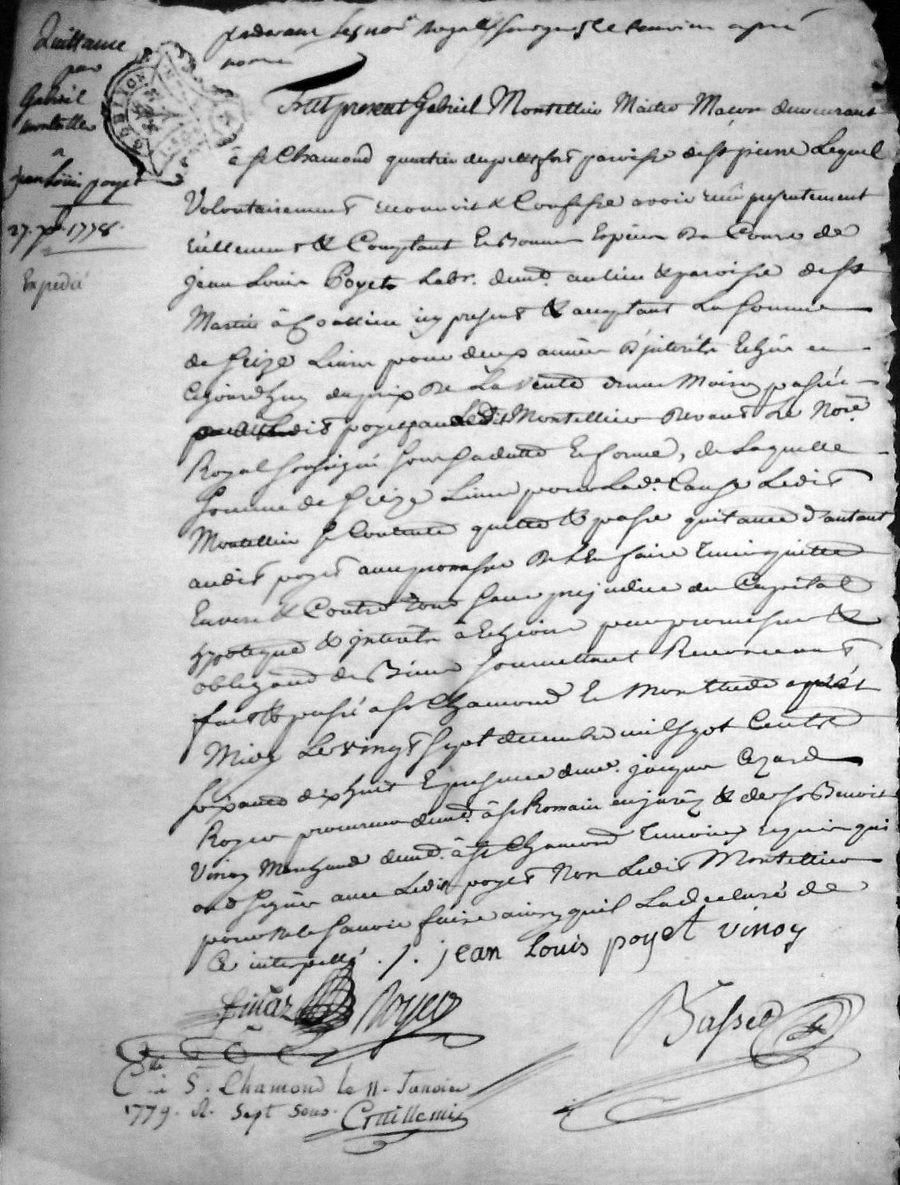 Quittance
par
Gabriel
montellier
a
jean Louis poyet
27. Xbre 1778.
Expedié
pardevant Le not. Royal soussigné et temoins apres
nommés
Fut present Gabriel Montellier Maitre Macon demeurant
à st Chamond quartier de paroisse de st pierre Lequel
Volontairement reconnoit & Confesse avoir reçu presentement
réellement & Comptant En Bonnes Especes De Cours de
jean Louis Poyet Labr. demt. au lieu & paroisse de st
Martin à Coallieu icy present & acceptant La somme
de seize Livres pour deux années D'interets Echus en
Cejourd'huy du prix De La Vente d'une Maison passée
audit poyet par Ledit Montellier Devant Le Nore.
Royal soussigné sous sa datte En forme, de Laquelle
somme de seize Livres pour Lade. Cause Ledit
Montellier se Contente quitte & passe quittance d'autant
audit poyet avec promesse De L'En faire tenir quitte
Envers & Contre tous sans prejudice du Capital
hypotheque & interets à Echeoir par promesse &
obligeant ses Biens soumettant Renonceant
fait & passé à st Chamond En Montlude apres
Midy Le vingt sept decembre mil sept Cents
soixante dix huit En presence de me. jacques Cezard
Royer procureur demt. à st Romain en jarez & de sr Benoit
Vinoy Marchand demt. à st Chamond temoins Requis qui
ont signé avec Ledit poyet Non Ledit Montellier
pour ne le savoir faire ainsy qu'il La declaré de
Ce interpellé ./. jean Louis poyet vinoy
finaz Royer
Basset
à S. Chamond le 11. Janvier
1779. R. Sept Sous.